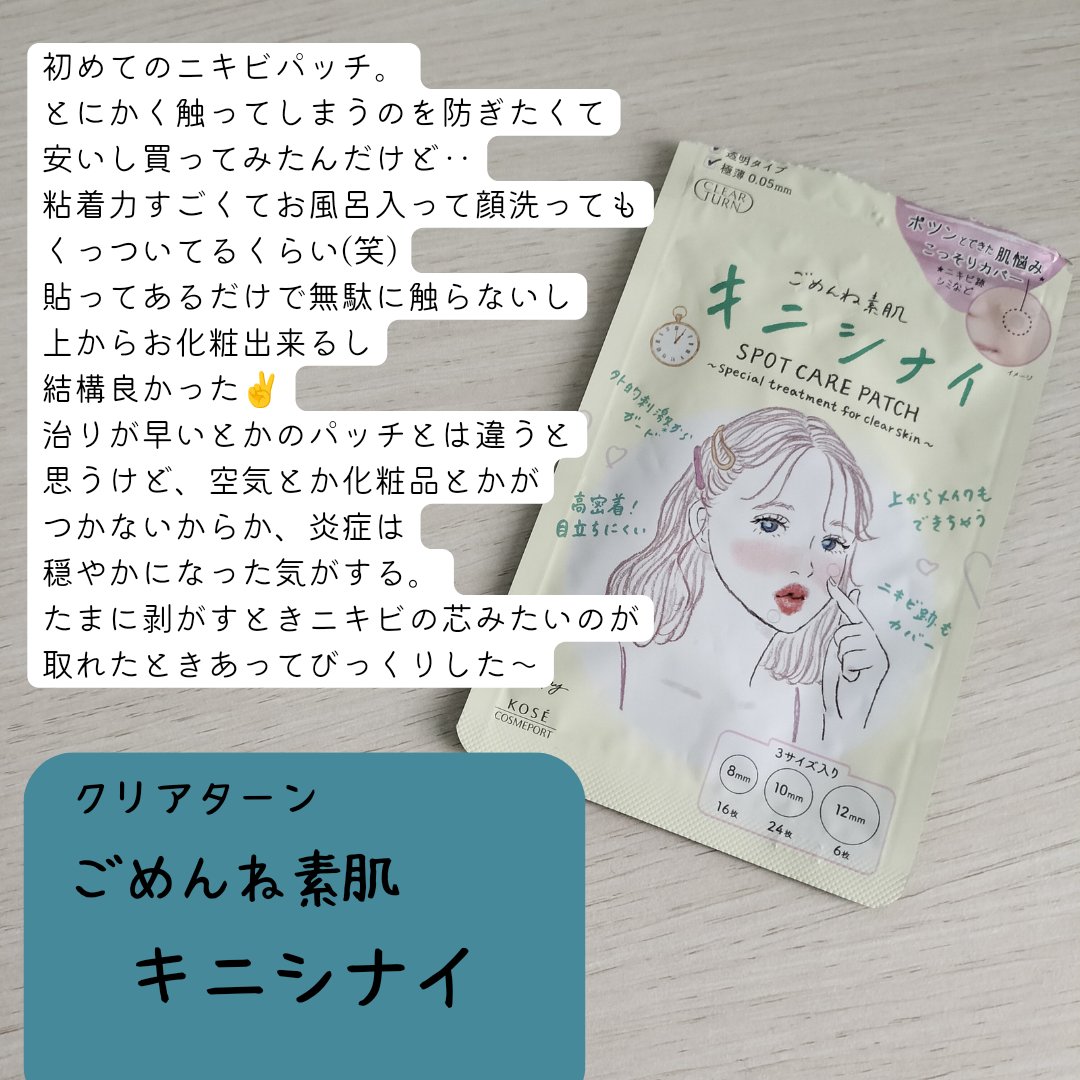 初めてのニキビパッチ。
とにかく触ってしまうのを防ぎたくて
安いし買ってみたんだけど‥
粘着力すごくてお風呂入って顔洗っても
くっついてるくらい(笑)
貼ってあるだけで無駄に触らないし
上からお化粧出来るし
結構良かった✌️
治りが早いとかのパッチとは違うと
思うけど、空気とか化粧品とかが
つかないからか、炎症は
穏やかになった気がする。
たまに剥がすときニキビの芯みたいのが
取れたときあってびっくりした～
✓透明タイプ
✓極薄 0.05mm
CLEAR
TURN
ポツンとできた肌悩み
こっそりカバー
*ニキビ跡
シミなど
イメージ
ごめんね素肌
キニシナイ
SPOT CARE PATCH
～special treatment for clear skin～
外的刺激から
ガード
高密着!
目立ちにくい
上からメイクも
できちゃう
ニキビ跡も
カバー
KOSÉ
COSMEPORT
3サイズ入り
8mm
10mm
12mm
16枚
24枚
6枚
クリアターン
ごめんね素肌
キニシナイ